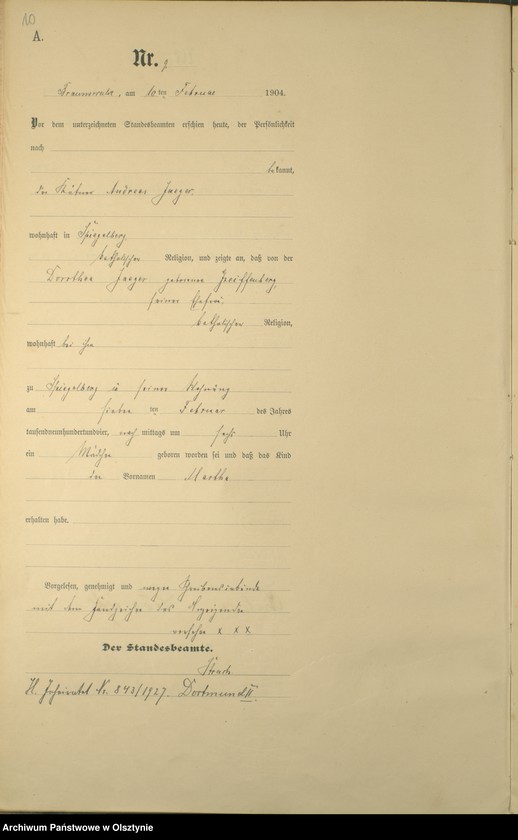 10
A.
Nr. 9
Braunswalde, am 10ten Februar 1904.
Vor dem unterzeichneten Standesbeamten erschien heute, der Persönlichkeit
nach
bekannt,
der Käthner Andreas Jaeger
wohnhaft in Spiegelberg
katholischer Religion, und zeigte an, daß von der
Dorothea Jaeger geborenen
seiner Ehefrau
katholischer Religion,
wohnhaft bei ihm
zu Spiegelberg in seiner Wohnung
am sieben ten Februar des Jahres
tausendneunhundertundvier, nachmittags um sechs Uhr
ein Mädchen geboren worden sei und daß das Kind
den Vornamen Martha
erhalten habe.
Vorgelesen, genehmigt und wegen Schreibensunkunde
mit dem Handzeichen des Anzeigenden
versehen x x x
Der Standesbeamte.
H. Geheiratet Nr. 843/1927 Dortmund II
Archiwum Państwowe w Olsztynie